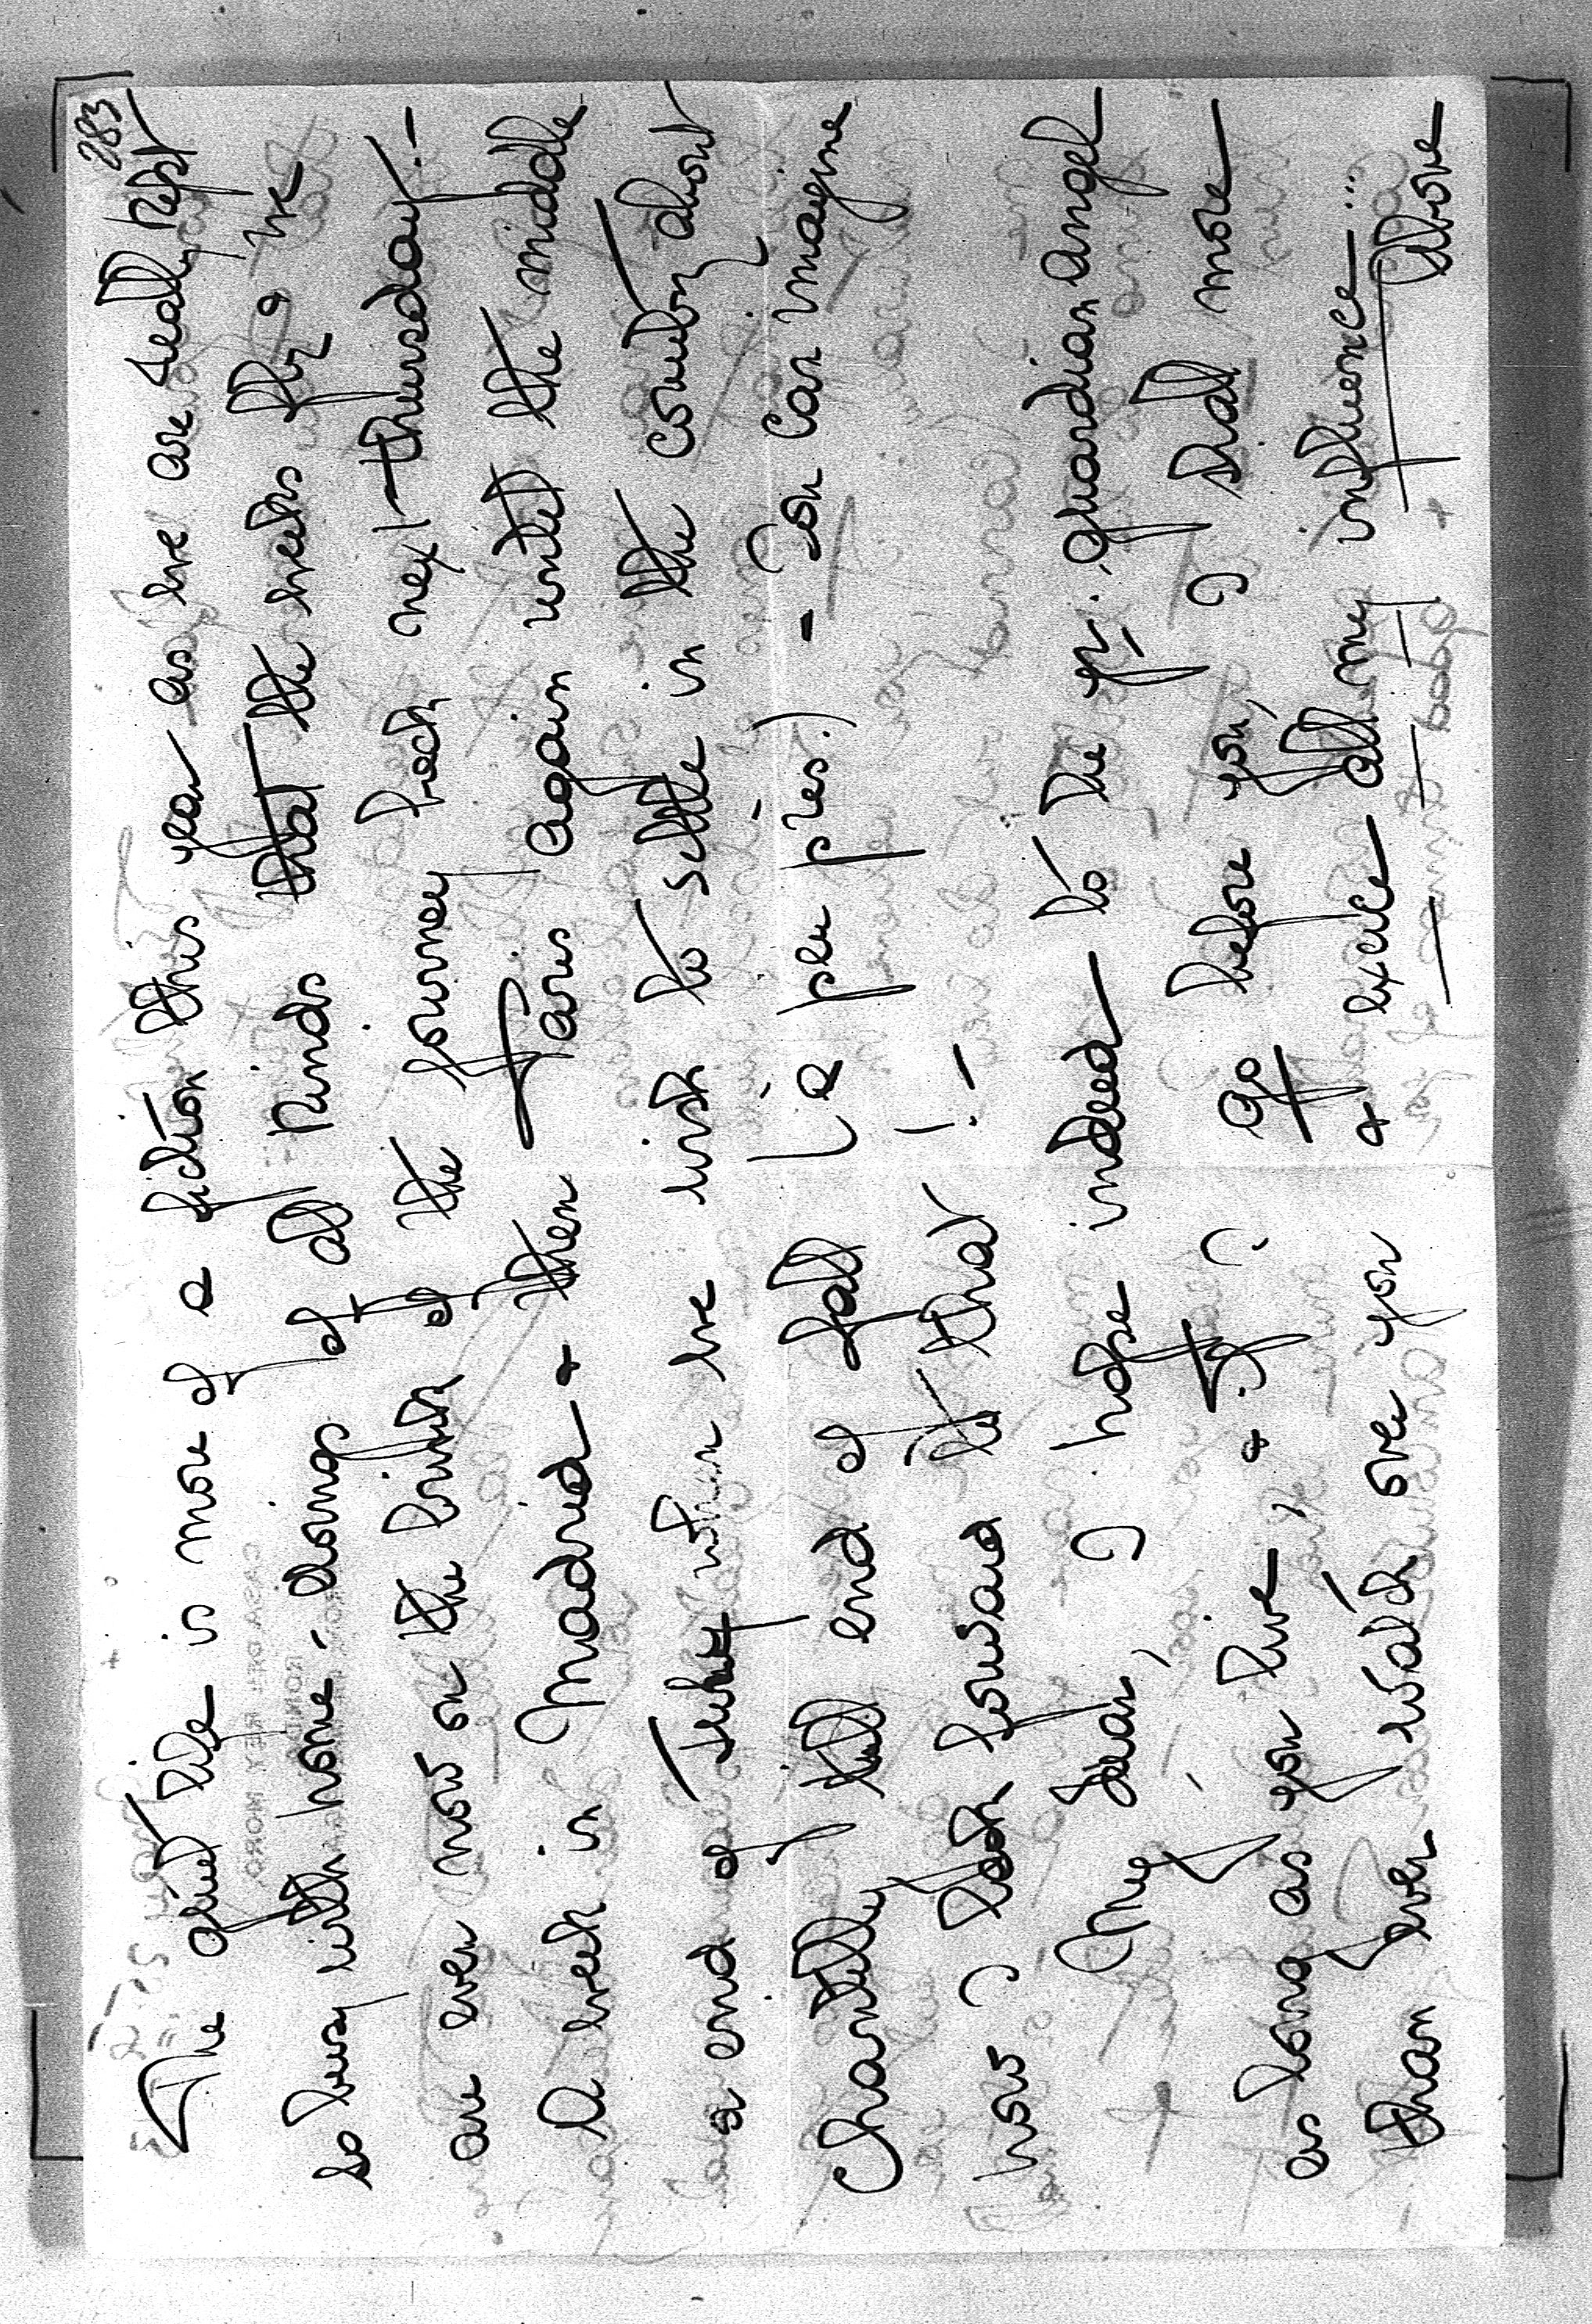 283
The quiet life is more of a fiction this year as we are really kept
so busy with home-doings of all kinds that the weeks fly & we
are even now on the brink of the journey back next thursday!-
A week in Madrid & then Paris again until the middle
a end of July when we wish to settle in the country about
Chantilly till end of fall (à peu près.) - You can imagine
how I look forward to that!-
My Dear, I hope indeed to be yr. guardian angel
as long as you live, & if I go before you, I shall more
than ever watch over you & exace all my influence...
above
CASA DEL REY MORO.
RONDA